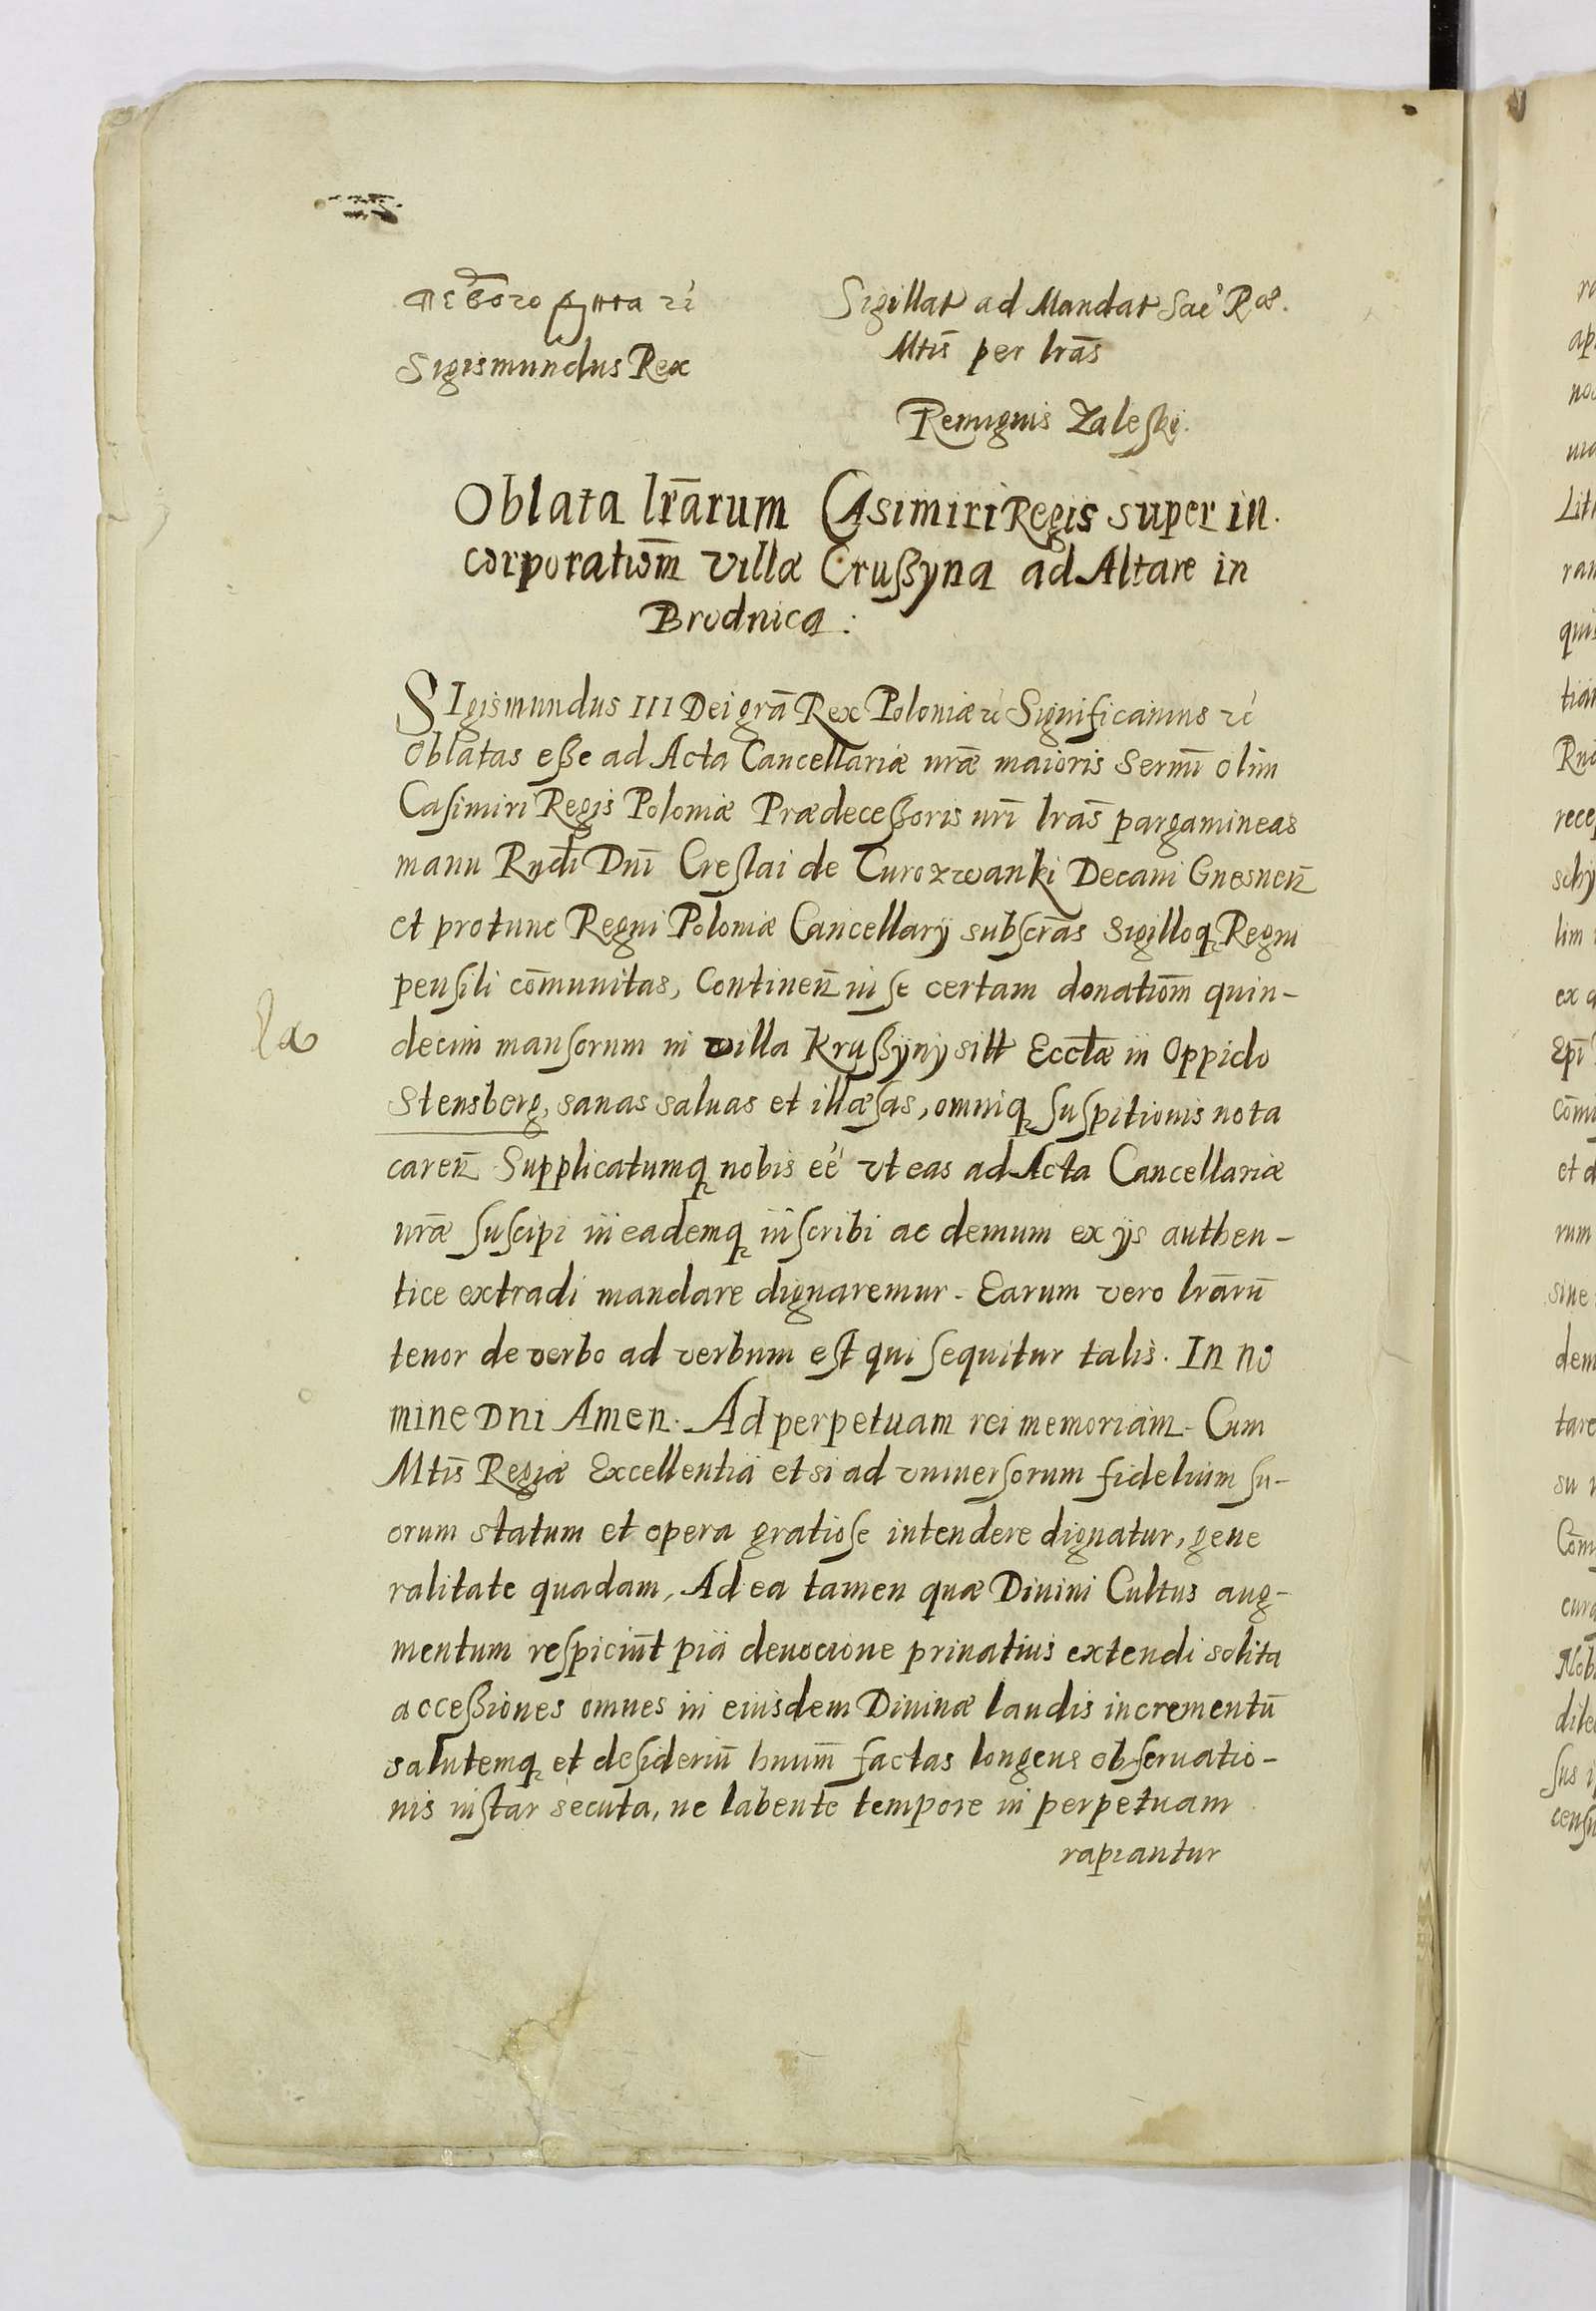 Sigismundus Rex
Sigillat ad Mandat Sac Rae.
Mtis per lras
Remigius Zaleski.
Oblata lrarum Casimiri Regis super in
corporatiom villæ Crußyna ad Altare in
Brodnica:
SIgismundus III Dei gra Rex Poloniæ rc Significamus rc
Oblatas eße ad Acta Cancellariæ nræ maioris Sermi olim
Casimiri Regis Poloniæ Prædeceßoris nri lras pargamineas
manu Rndi Dni Creslai de Curozwanki Decani Gnesnen
et protunc Regni Poloniæ Cancellarij subscras Sigilloq Regni
pensili comunitas, Continen in se certam donatiom quin-
decim mansorum in villa Krußyny sitt Ecctæ in Oppido
Stensberg, sanas saluas et illæsas, omniq suspitionis nota
caren Supplicatumq nobis eē vt eas ad Acta Cancellariæ
nræ suscipi in eademq inscribi ac demum ex ijs authen-
tice extradi mandare dignaremur. Earum vero lraru
tenor de verbo ad verbum est qui sequitur talis. In no
mine Dni Amen. Ad perpetuam rei memoriam. Cum
Mtis Regiæ Excellentia etsi ad vniuersorum fidelium su-
orum statum et opera gratiose intendere dignatur, gene
ralitate quadam, Ad ea tamen quæ Diuini Cultus aug-
mentum respiciūt pia deuocione priuatius extendi solita
acceßiones omnes in eiusdem Diuinæ laudis incrementū
salutemq et desideriū hnum factas longeue obseruatio-
nis instar secuta, ne labente tempore in perpetuam
rapiantur